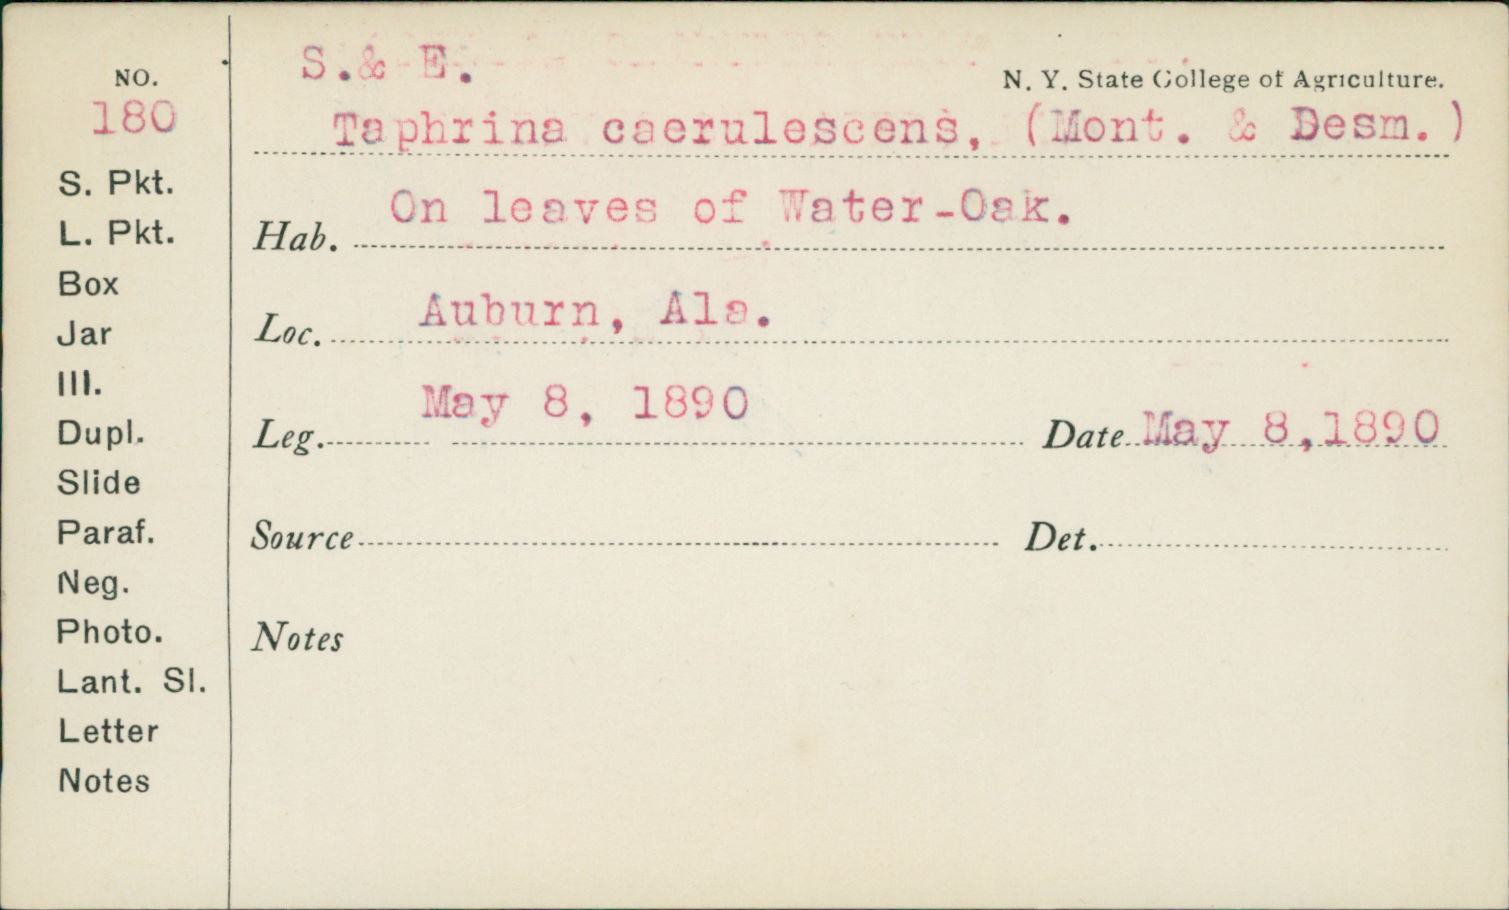 NO.
180
S. Pkt.
L. Pkt.
Box
Jar
Ill.
Dupl.
Slide
Paraf.
Neg.
Photo.
Lant. Sl.
Letter
Notes
S.& E.
N. Y. State College of Agriculture.
Taphrina caerulescens, (Mont. & Desm.)
Hab. On leaves of Water-Oak.
Loc. Auburn, Ala.
Leg. May 8, 1890 Date May 8,1890
Source Det.
Notes